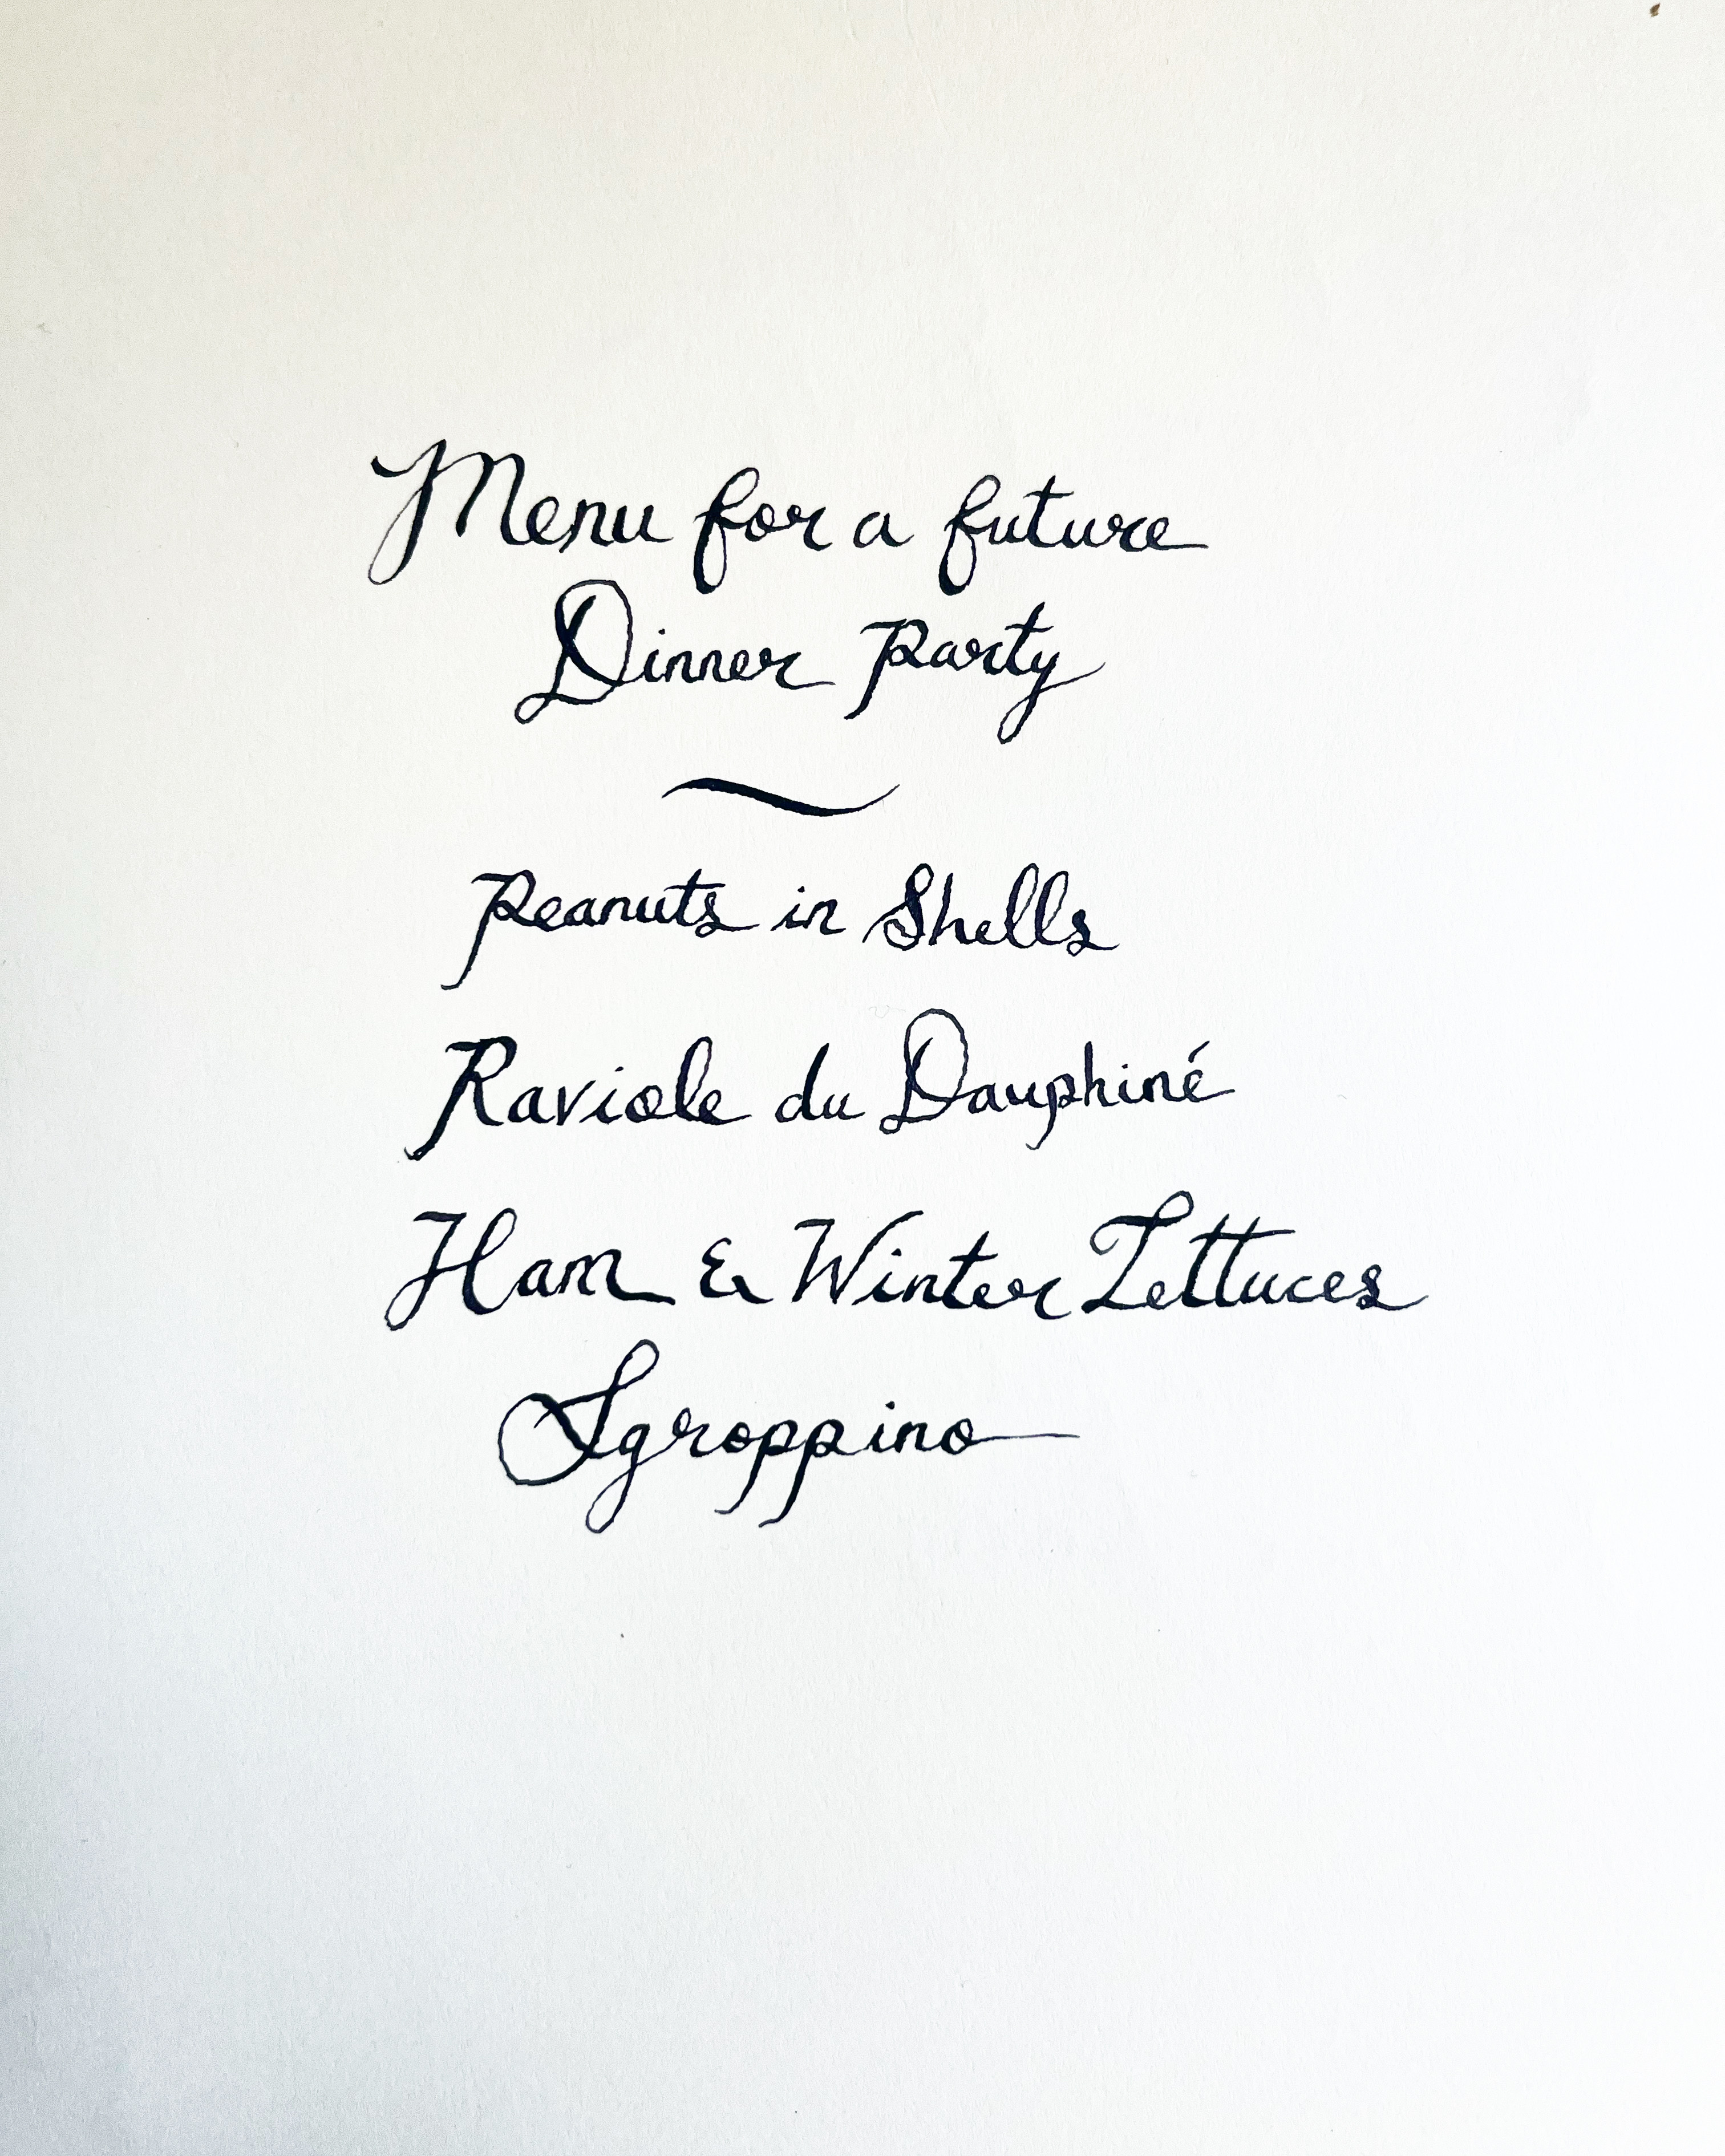 Menu for a future
Dinner Party
Peanuts in Shells
Raviole du Dauphiné
Ham & Winter Lettuces
Sgroppino